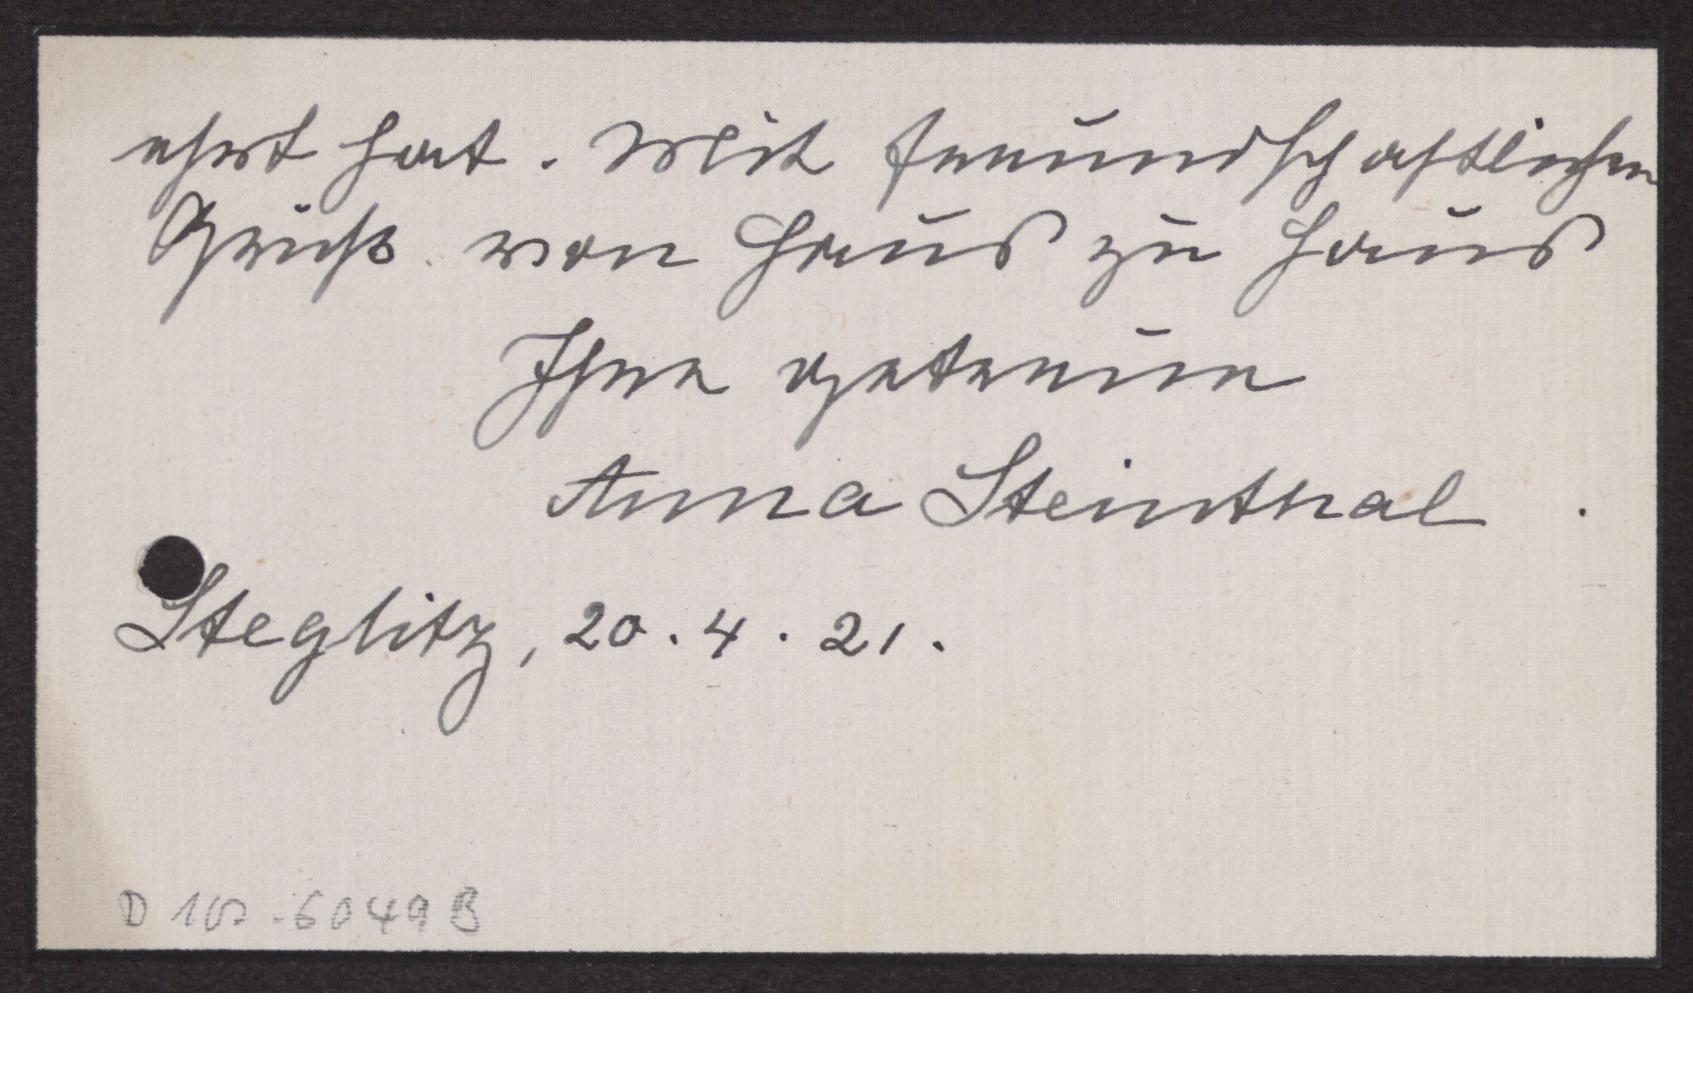 ehrt hat. Mit freundschaftlichem
Gruß von Haus zu Haus
Ihre getreue
Anna Steinthal.
Steglitz, 20.4.21.
D 107-6049 B